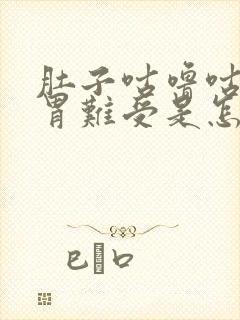 肚子咕噜咕
胃难受是怎
已 口